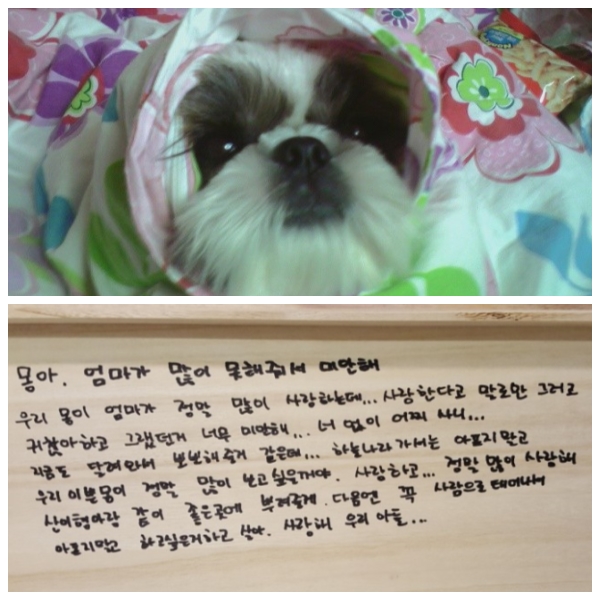 몽아. 엄마가 많이 못해줘서 미안해
우리 몽이 엄마가 정말 많이 사랑하는데... 사랑한다고 말로만 그러고
귀찮아하고 그랬던거 너무 미안해... 너 없이 어찌 사니...
지금도 달려와서 뽀뽀해줄거 같은데... 하늘나라 가서는 아프지말고
우리 이쁜몽이 정말 많이 보고싶을거야. 사랑하고... 정말 많이 사랑해
산이형아랑 같이 좋은곳에 뿌려줄게. 다음엔 꼭 사람으로 태어나서
아프지말고 하고싶은거하고 살아. 사랑해 우리 아들...